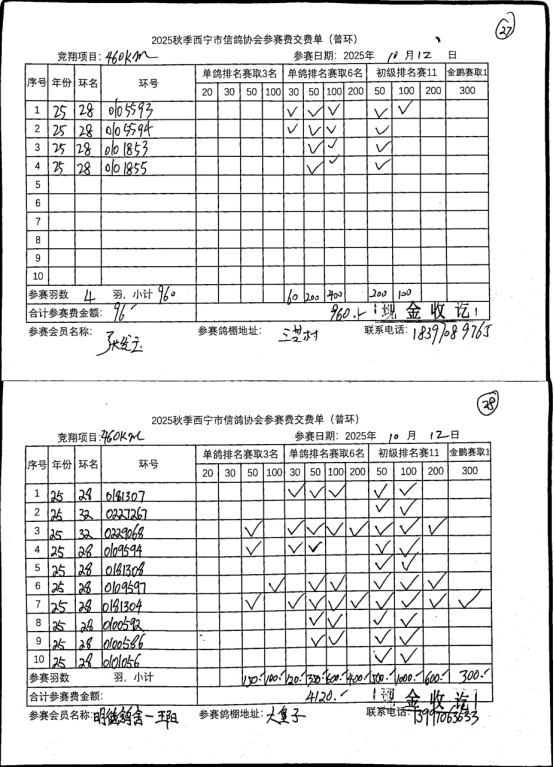 27
2025秋季西宁市信鸽协会参赛费交费单（普环）
竞翔项目：460KM 参赛日期：2025年 10 月 12 日
序号 年份 环名 环号 单鸽排名赛取3名 单鸽排名赛取6名 初级排名赛11 金鹏赛取1
20 30 50 100 30 50 100 200 50 100 200 300
1 25 28 0105593 ✓ ✓ ✓ ✓ ✓
2 25 28 0105594 ✓ ✓ ✓ ✓
3 25 28 0101853 ✓ ✓ ✓
4 25 28 0101855 ✓ ✓ ✓
5
6
7
8
9
10
参赛羽数 4 羽，小计 960 60 200 400 200 100
合计参赛费金额： 960.- 现金收讫
参赛会员名称： 参赛鸽棚地址： 联系电话：18397089765
28
2025秋季西宁市信鸽协会参赛费交费单（普环）
竞翔项目：460KM 参赛日期：2025年 10 月 12 日
序号 年份 环名 环号 单鸽排名赛取3名 单鸽排名赛取6名 初级排名赛11 金鹏赛取1
20 30 50 100 30 50 100 200 50 100 200 300
1 25 28 0181307 ✓ ✓ ✓ ✓ ✓
2 25 32 0227267 ✓ ✓
3 25 32 0229068 ✓ ✓ ✓ ✓ ✓ ✓ ✓ ✓
4 25 28 0109594 ✓ ✓ ✓ ✓ ✓
5 25 28 0181308 ✓ ✓
6 25 28 0109597 ✓ ✓ ✓ ✓ ✓ ✓
7 25 28 0181304 ✓ ✓ ✓ ✓ ✓ ✓ ✓ ✓ ✓
8 25 28 0100592 ✓ ✓ ✓ ✓
9 25 28 0100586 ✓ ✓ ✓ ✓
10 25 28 0101056 ✓ ✓
参赛羽数 羽，小计 150.- 100.- 120.- 350.- 600.- 400.- 500.- 1000.- 600.- 300.-
合计参赛费金额： 4120.- 现金收讫
参赛会员名称： 参赛鸽棚地址： 联系电话：13997063633